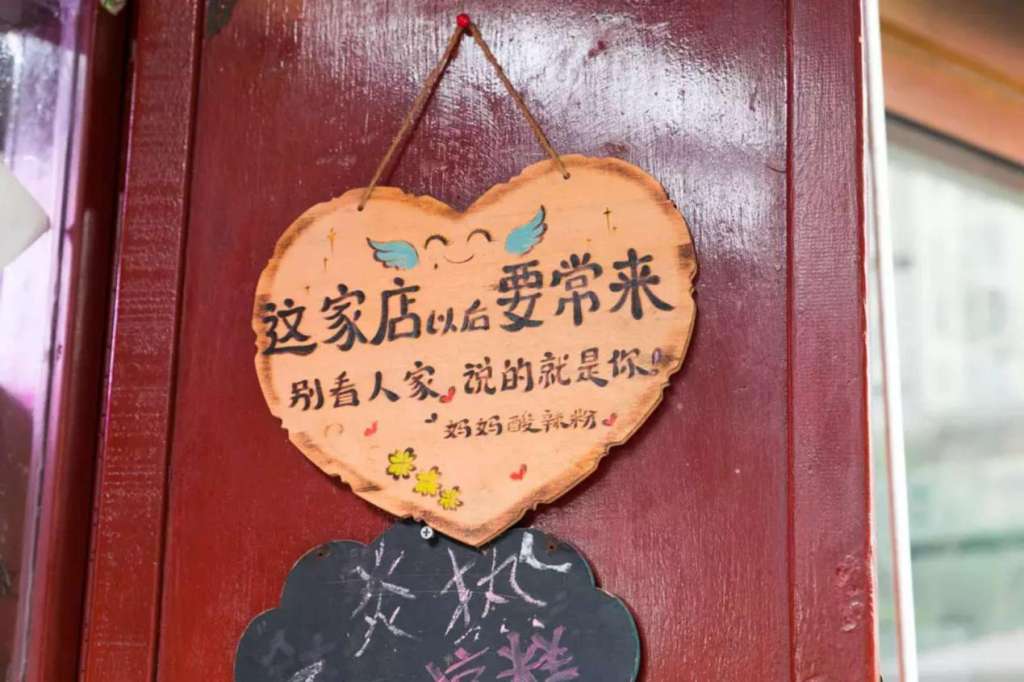 这家店以后要常来
别看人家,说的就是你!
妈妈酸辣粉
炎热